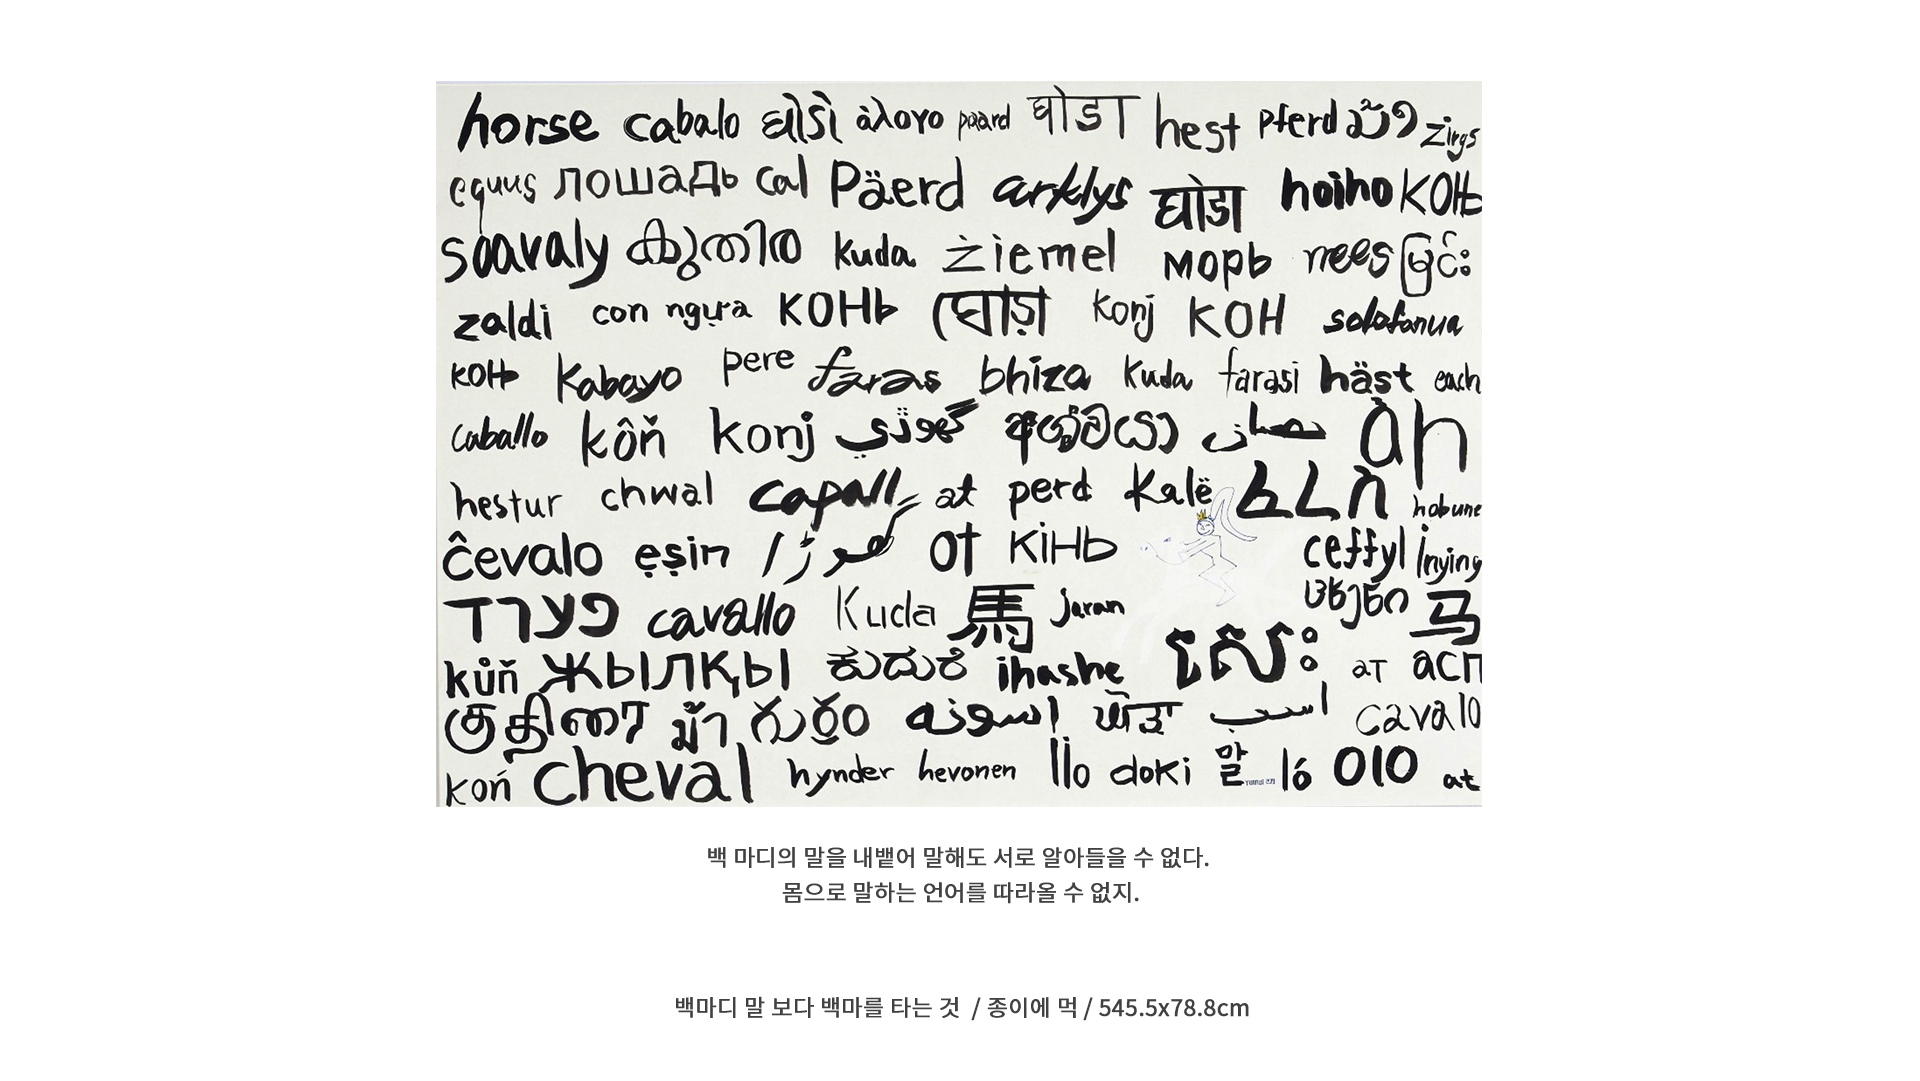 horse cabalo ઘોડો άλογο paard घोडा hest pferd ม้า zirgs
equus лошадь cal Päerd arklys घोडा hoiho КОНЬ
soavaly കുതിര kuda żiemel морь nees မြင်း
zaldi con ngựa КОНЬ ঘোড়া konj КОН solofanua
конь Kabayo pere faras bhiza kuda farasi häst each
caballo kôň konj گھوڙي අශ්වයා حصان àn
hestur chwal capall at perd Kalë ፈረስ hobune
ĉevalo ẹṣin گھوڑا от кінь ceffyl Inying
פערד cavallo Kuda 馬 jaran ცხენი 马
kůň жылқы ಕುದುರೆ ihashe សេះ ат асп
குதிரை ม้า గుర్రం اسونه ਘੋੜਾ اسب cavalo
koń cheval hynder hevonen llo doki 말 ló OIO at
백 마디의 말을 내뱉어 말해도 서로 알아들을 수 없다.
몸으로 말하는 언어를 따라올 수 없지.
백마디 말 보다 백마를 타는 것 / 종이에 먹 / 545.5x78.8cm